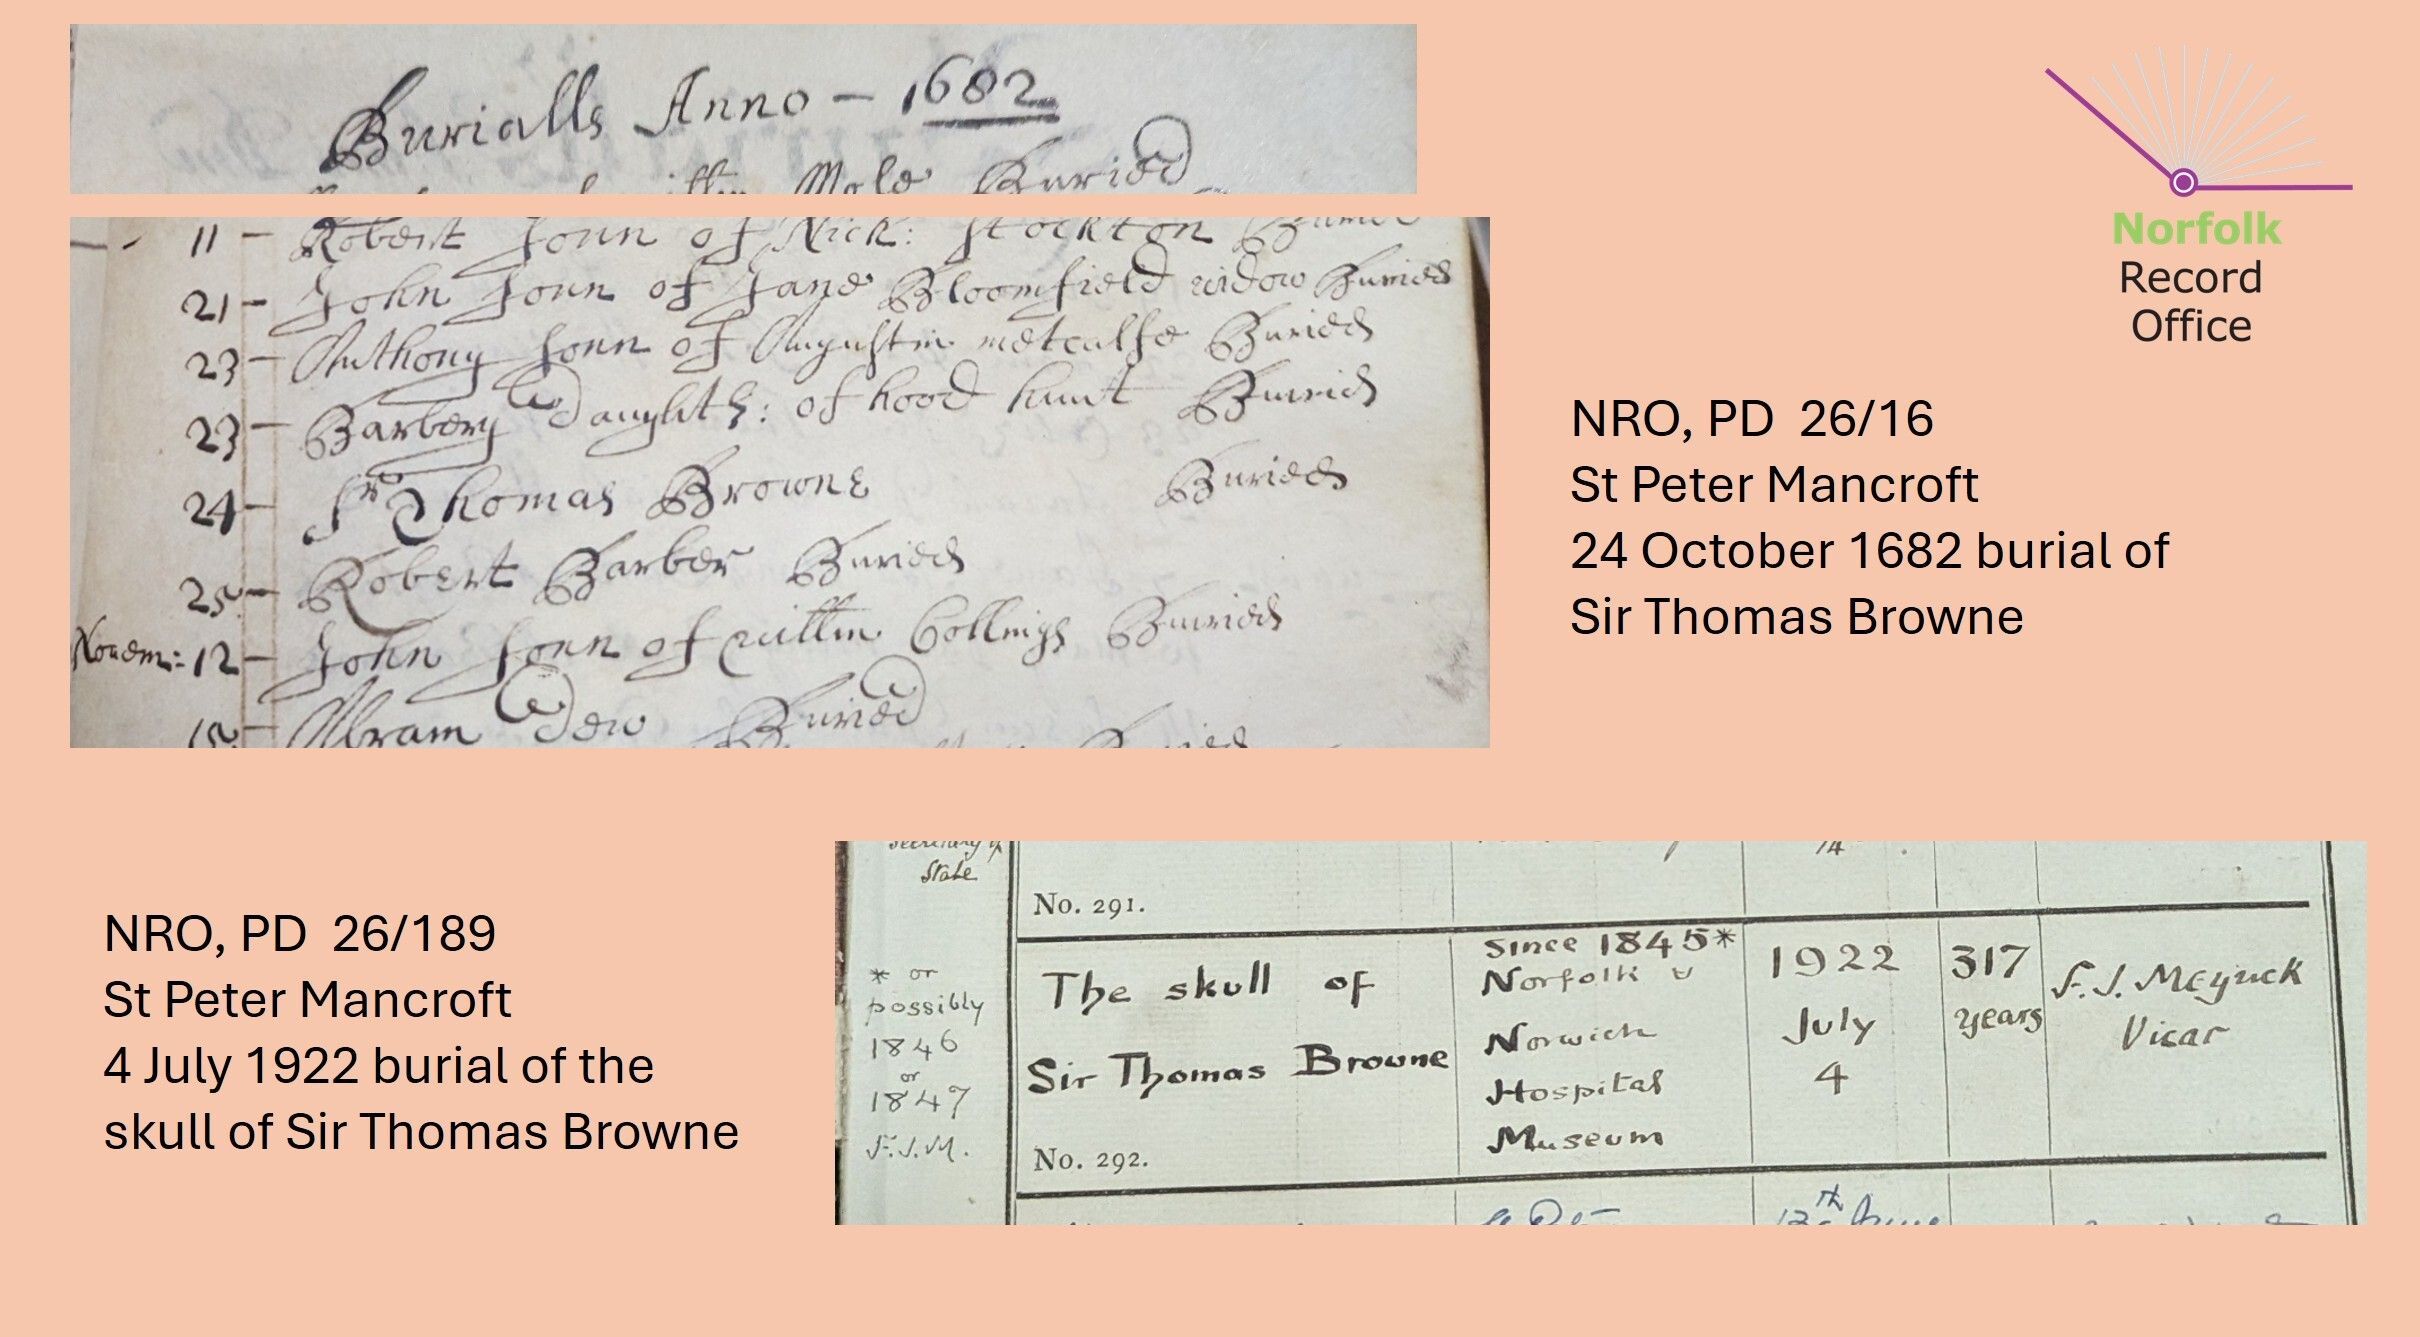 Burialls Anno - 1682
Mole Buried
11 - Robert sonn of Nick: Stockton Buried
21 - John sonn of Jane Bloomfield widow Buried
23 - Anthony sonn of Augustin metcalfe Buried
23 - Barbery Daughtr: of hood hunt Buried
24 - Sr Thomas Browne Buried
25 - Robert Barber Buried
Novem: 12 - John sonn of willm Collings Buried
15 Abram Dew Buried
Norfolk
Record
Office
NRO, PD 26/16
St Peter Mancroft
24 October 1682 burial of
Sir Thomas Browne
NRO, PD 26/189
St Peter Mancroft
4 July 1922 burial of the
skull of Sir Thomas Browne
Secretary of
State
No. 291.
* or
possibly
1846
or
1847
F.J.M.
The skull of
Sir Thomas Browne
No. 292.
Since 1845*
Norfolk &
Norwich
Hospital
Museum
1922
July
4
317
years
F. J. Meyrick
Vicar